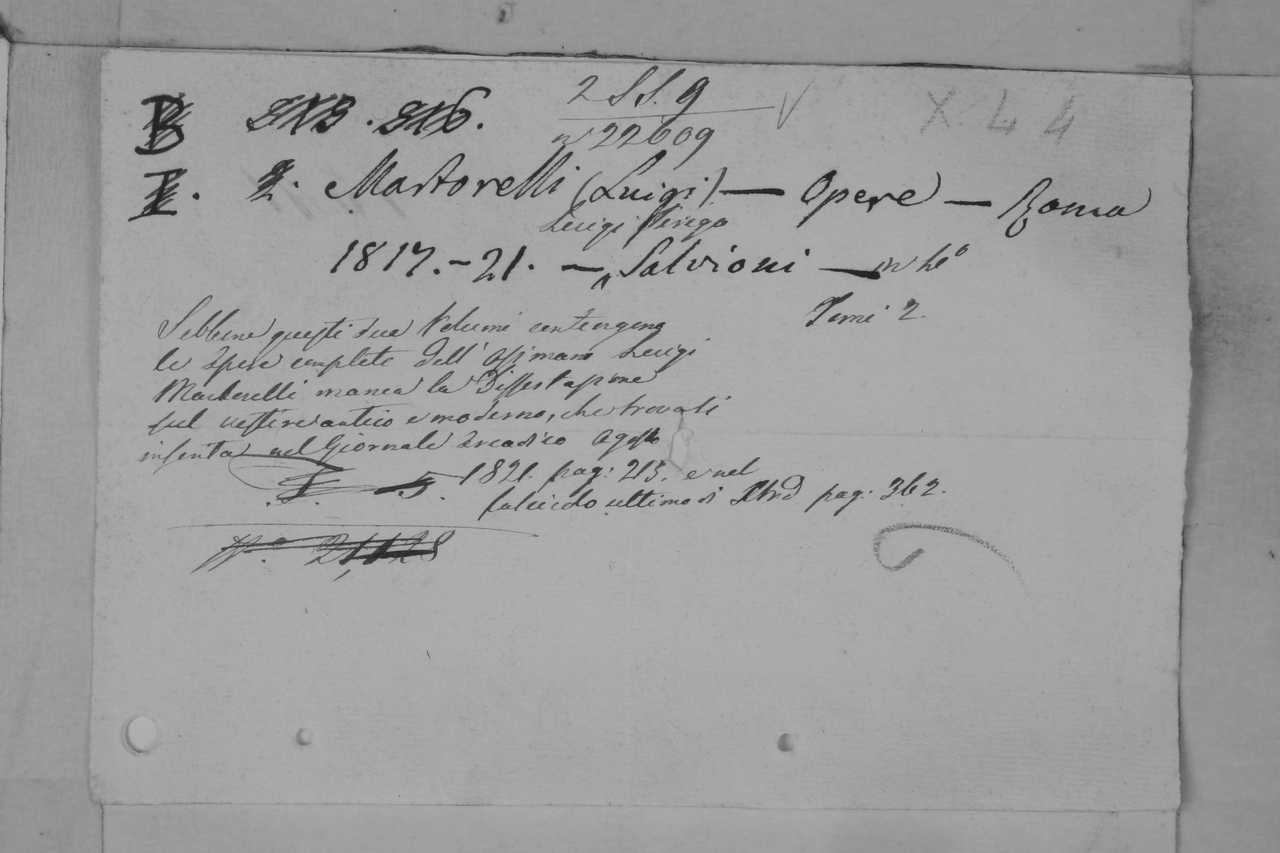 B 2 SS. 9 X. 4 4
nº 22609
I. 2. Martorelli (Luigi) — Opere — Roma
Luigi Perego
1817.-21. — Salvioni — in 4º
Tomi 2.
Sebbene questi due Volumi contengono
le Opere complete dell' Osimano Luigi
Martorelli manca la Dissertazione
sul vestire antico e moderno, che trovasi
inserita nel Giornale Arcadico Agosto
1821. pag: 213. e nel
fascicolo ultimo di pag: 362.
I 5.
Nº 21,128